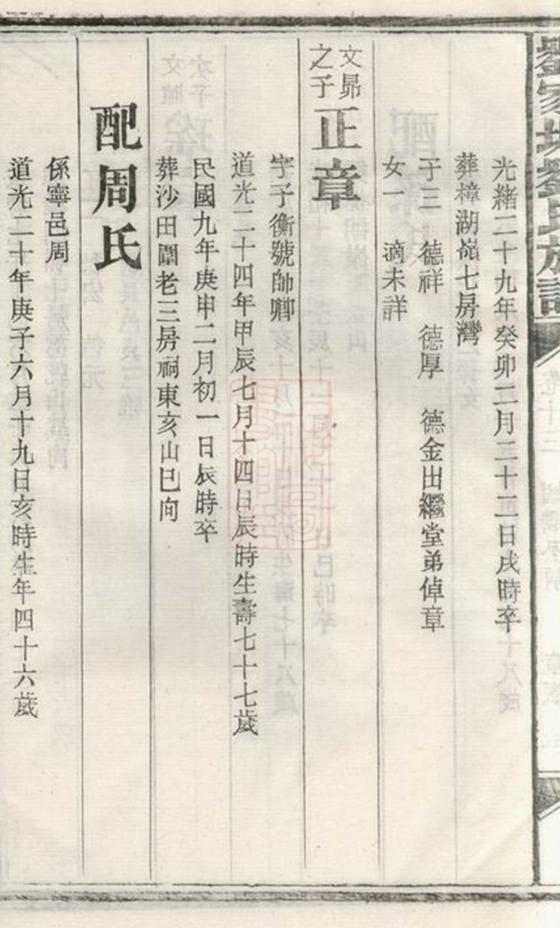 劉家塅劉氏族譜
光緒二十九年癸卯二月二十二日戌時卒
葬樟湖嶺七房灣
子三　德祥　德厚　德金出繼堂弟倬章
女一　適未詳
文昴之子正章
字子衡號帥卿
道光二十四年甲辰七月十四日辰時生壽七十七歲
民國九年庚申二月初一日辰時卒
葬沙田團老三房祠東亥山巳向
配周氏
係寧邑周
道光二十年庚子六月十九日亥時生年四十六歲